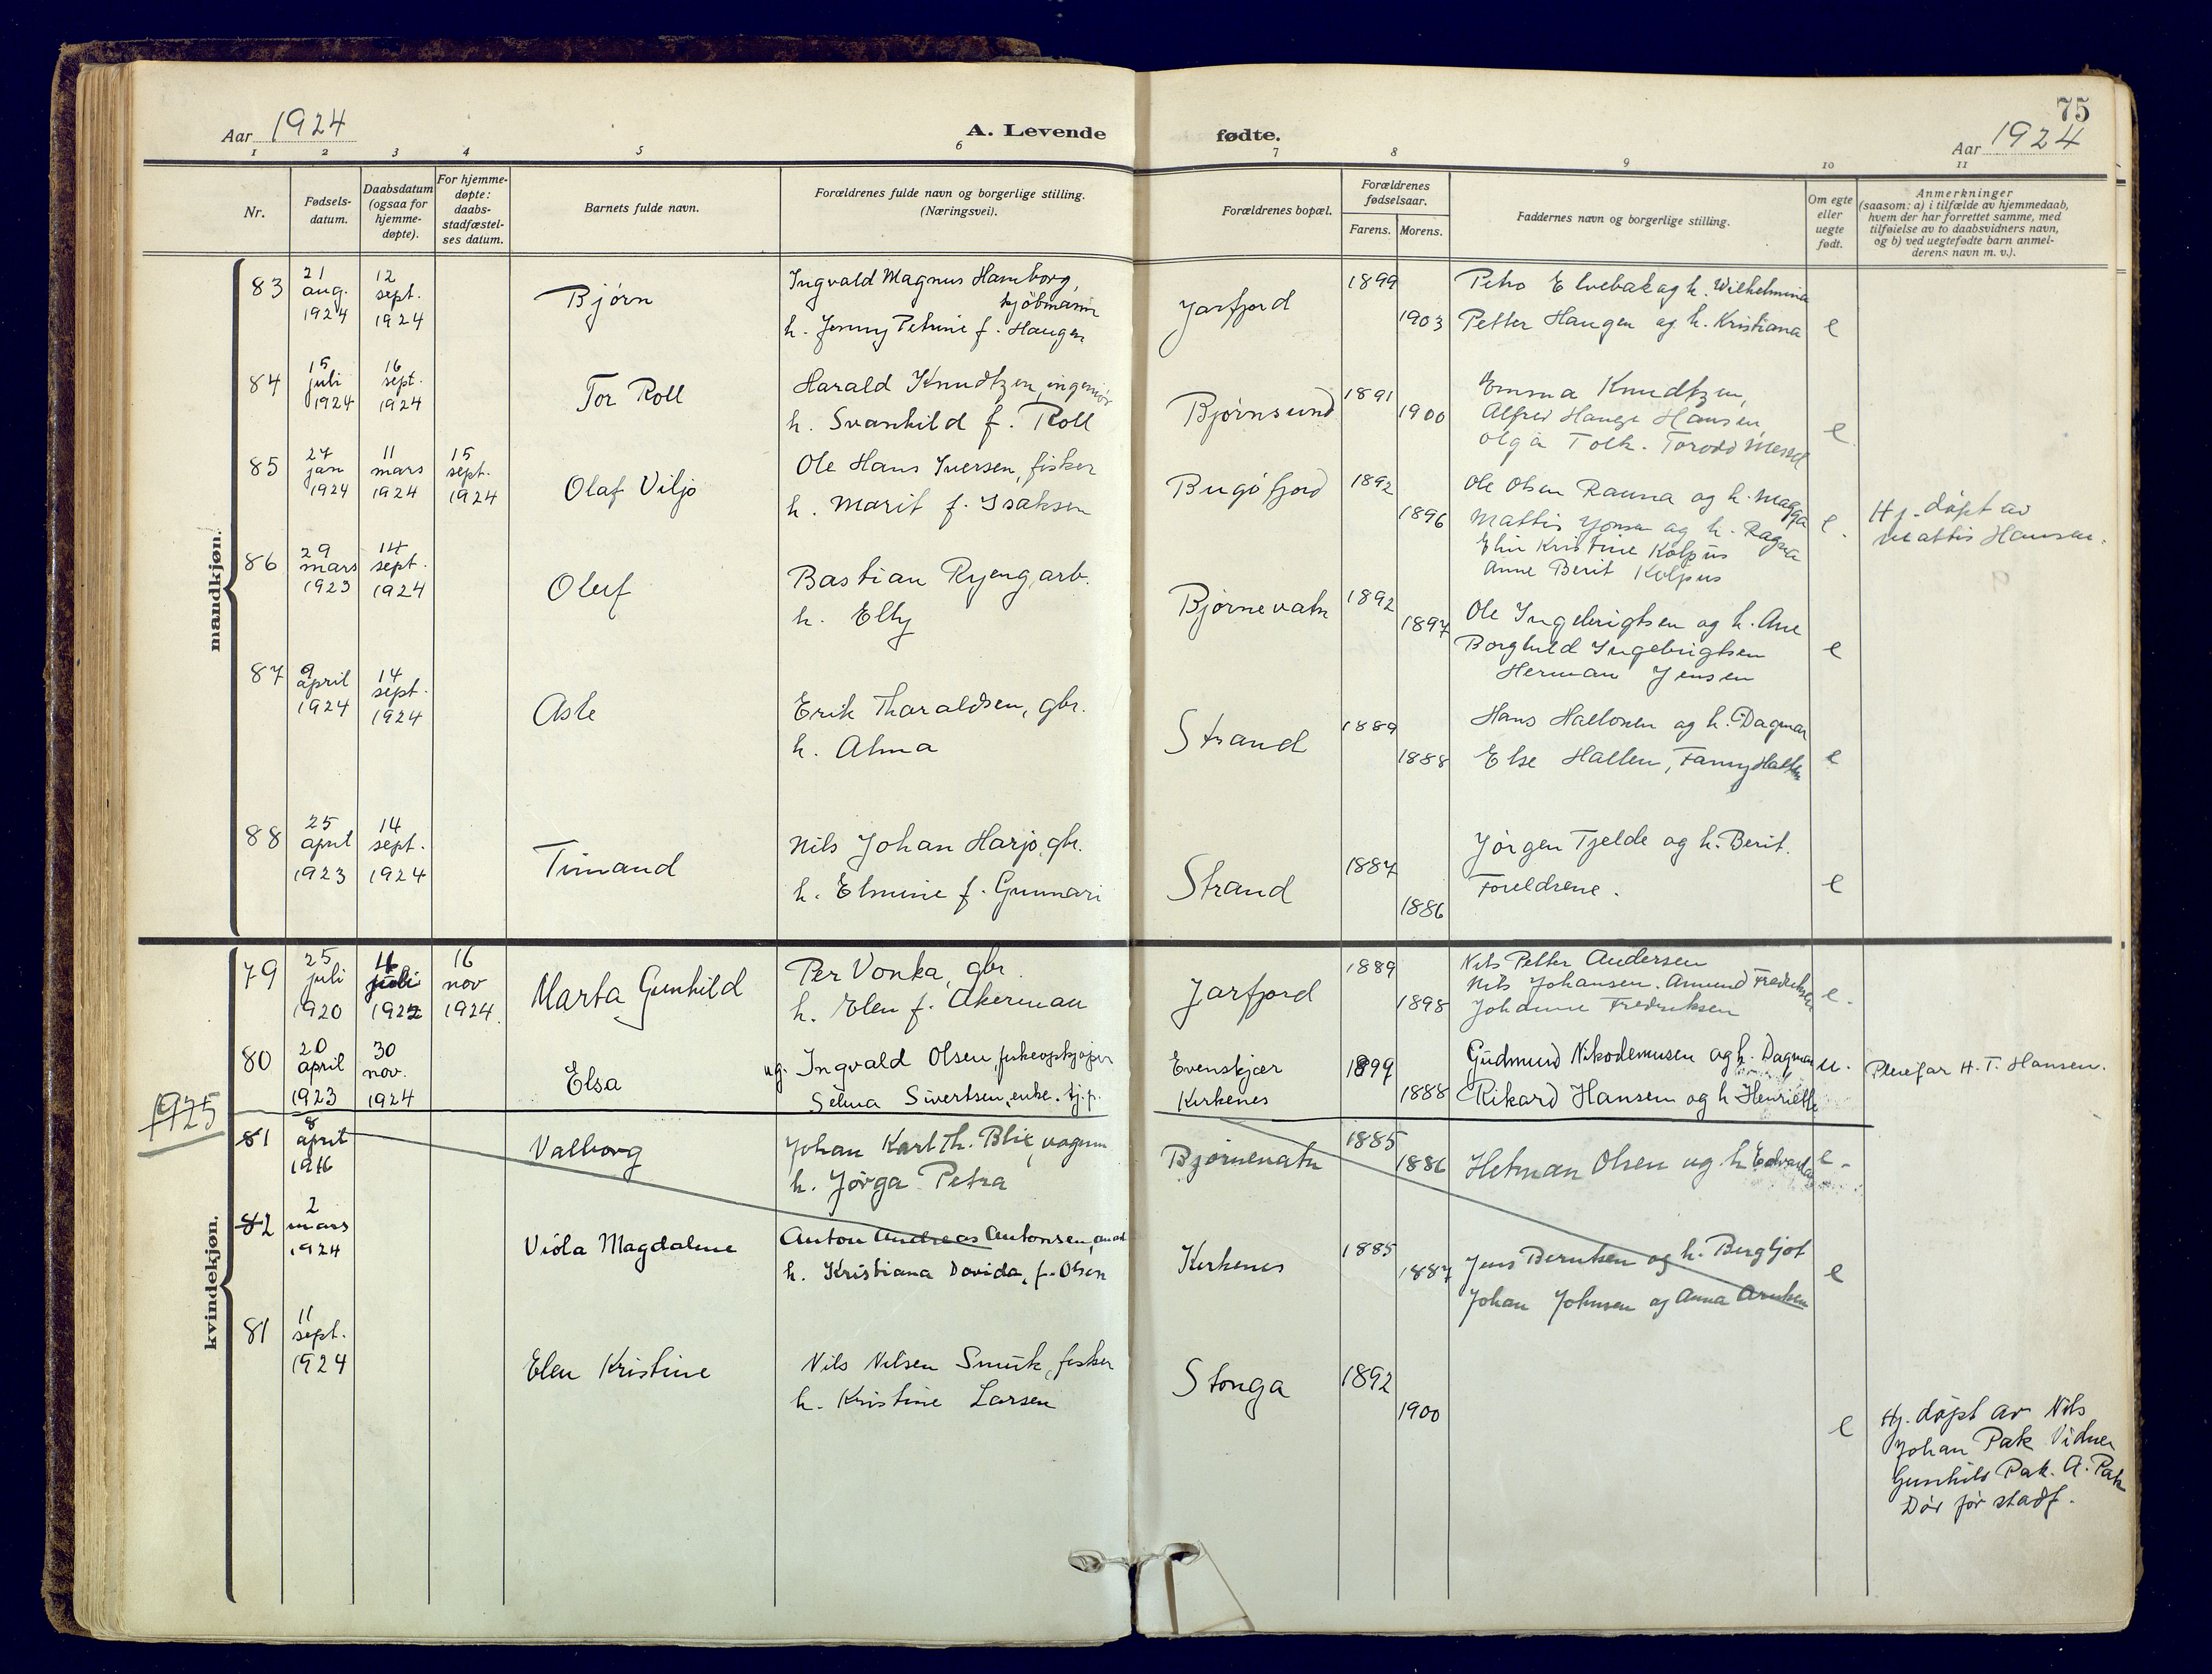 Aar 1924
A. Levende fødte.
75
Aar 1924
1 2 3 4 5 6 7 8 9 10 11
Nr.
Fødsels-
datum.
Daabsdatum
(ogsaa for
hjemme-
døpte).
For hjemme-
døpte:
daabs-
stadfæstel-
ses datum.
Barnets fulde navn.
Forældrenes fulde navn og borgerlige stilling.
(Næringsvei).
Forældrenes bopæl.
Forældrenes
fødselsaar.
Farens. Morens.
Faddernes navn og borgerlige stilling.
Om egte
eller
uegte
født.
Anmerkninger
(saasom: a) i tilfælde av hjemmedaab,
hvem der har forrettet samme, med
tilføielse av to daabsvidners navn,
og b) ved uegtefødte barn anmel-
derens navn m. v.).
mandkjøn.
83
21
aug.
1924
12
sept.
1924
Bjørn
Ingvald Magnus Hamborg,
kjøbmann
h. Jenny Petrine f. Haugen
Jarfjord
1899
1903
Petra Elvebak og h. Wilhelmina
Petter Haugen og h. Kristiana
e
84
15
juli
1924
16
sept.
1924
Tor Roll
Harald Knudtzen, ingeniør
h. Svanhild f. Roll
Bjørnsund
1891
1900
Emma Knudtzen,
Alfred Hauge Hansen
Olga Tolk. Torodd
e.
85
24
jan
1924
11
mars
1924
15
sept.
1924
Olaf Viljo
Ole Hans Iversen, fisker
h. Marit f. Isaksen
Bugøfjord
1892
1896
Ole Olsen Rauna og h. Magga
Mattis Jonsen og h. Ragna
Elin Kristine Kolpus
Anne Berit Kolpus
e.
Hj. døpt av
Mattis Hansen.
86
29
mars
1923
14
sept.
1924
Oluf
Bastian Ryeng, arb.
h. Elly
Bjørnevatn
1892
1897
Ole Ingebrigtsen og h. Ane
Borghild Ingebrigtsen
Herman Jensen
e
87
9
april
1924
14
sept.
1924
Asle
Erik Tharaldsen, gbr.
h. Alma
Strand
1889
1888
Hans Hallonen og h. Dagmar
Else Hallen, Fanny Hallen
e
88
25
april
1923
14
sept.
1924
Timand
Nils Johan Harjo, gbr.
h. Elmine f. Gunnari
Strand
1887
1886
Jørgen Tjelde og h. Berit.
Foreldrene.
e
kvindekjøn.
79
25
juli
1920
11
juli
1922
16
nov
1924.
Marta Gunhild
Per Vonka, gbr.
h. Elen f. Akerman
Jarfjord
1889
1898
Nils Petter Andersen
Nils Johansen. Amund Fredriksen
Johanne Fredriksen
e.
80
20
april
1923
30
nov.
1924
Elsa
ug. Ingvald Olsen, fiskeopkjøper
Selma Sivertsen, enke. tj.p.
Evenskjær
Kirkenes
1899
1888
Gudmund Nikodemusen og h. Dagmar
Rikard Hansen og h Henriette
u.
Pleiefar H. T. Hansen.
1925
81
8
april
1916
Valborg
Johan Karl Th. Blix, vognm
h. Jørga Petra
Bjørnevatn
1885
1886
Helman Olsen og h Edvarda
e-
82
2
mars
1924
Viola Magdalene
Anton Andreas Antonsen,
h. Kristiana Dovida, f. Olsen
Kirkenes
1885
1887
Jens Berntsen og h. Bergljot
Johan Johnsen og Anna Arntsen
e
81
11
sept.
1924
Elen Kristine
Nils Nilsen Smuk, fisker
h. Kristine Larsen
Stonga
1892
1900
e
Hj. døpt av Nils
Johan Pak Vidner
Gunhild Pak. A. Pak
Død før stadf.